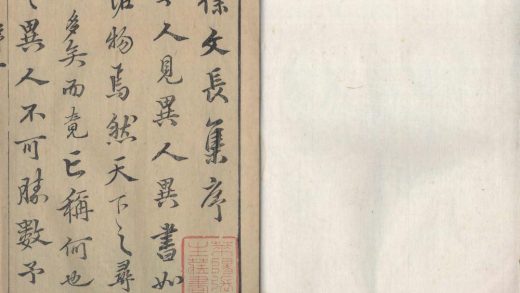 徐文長集序
人見異人異書如
物焉然天下之尋
多矣而竟已稱何也
異人不可勝數予